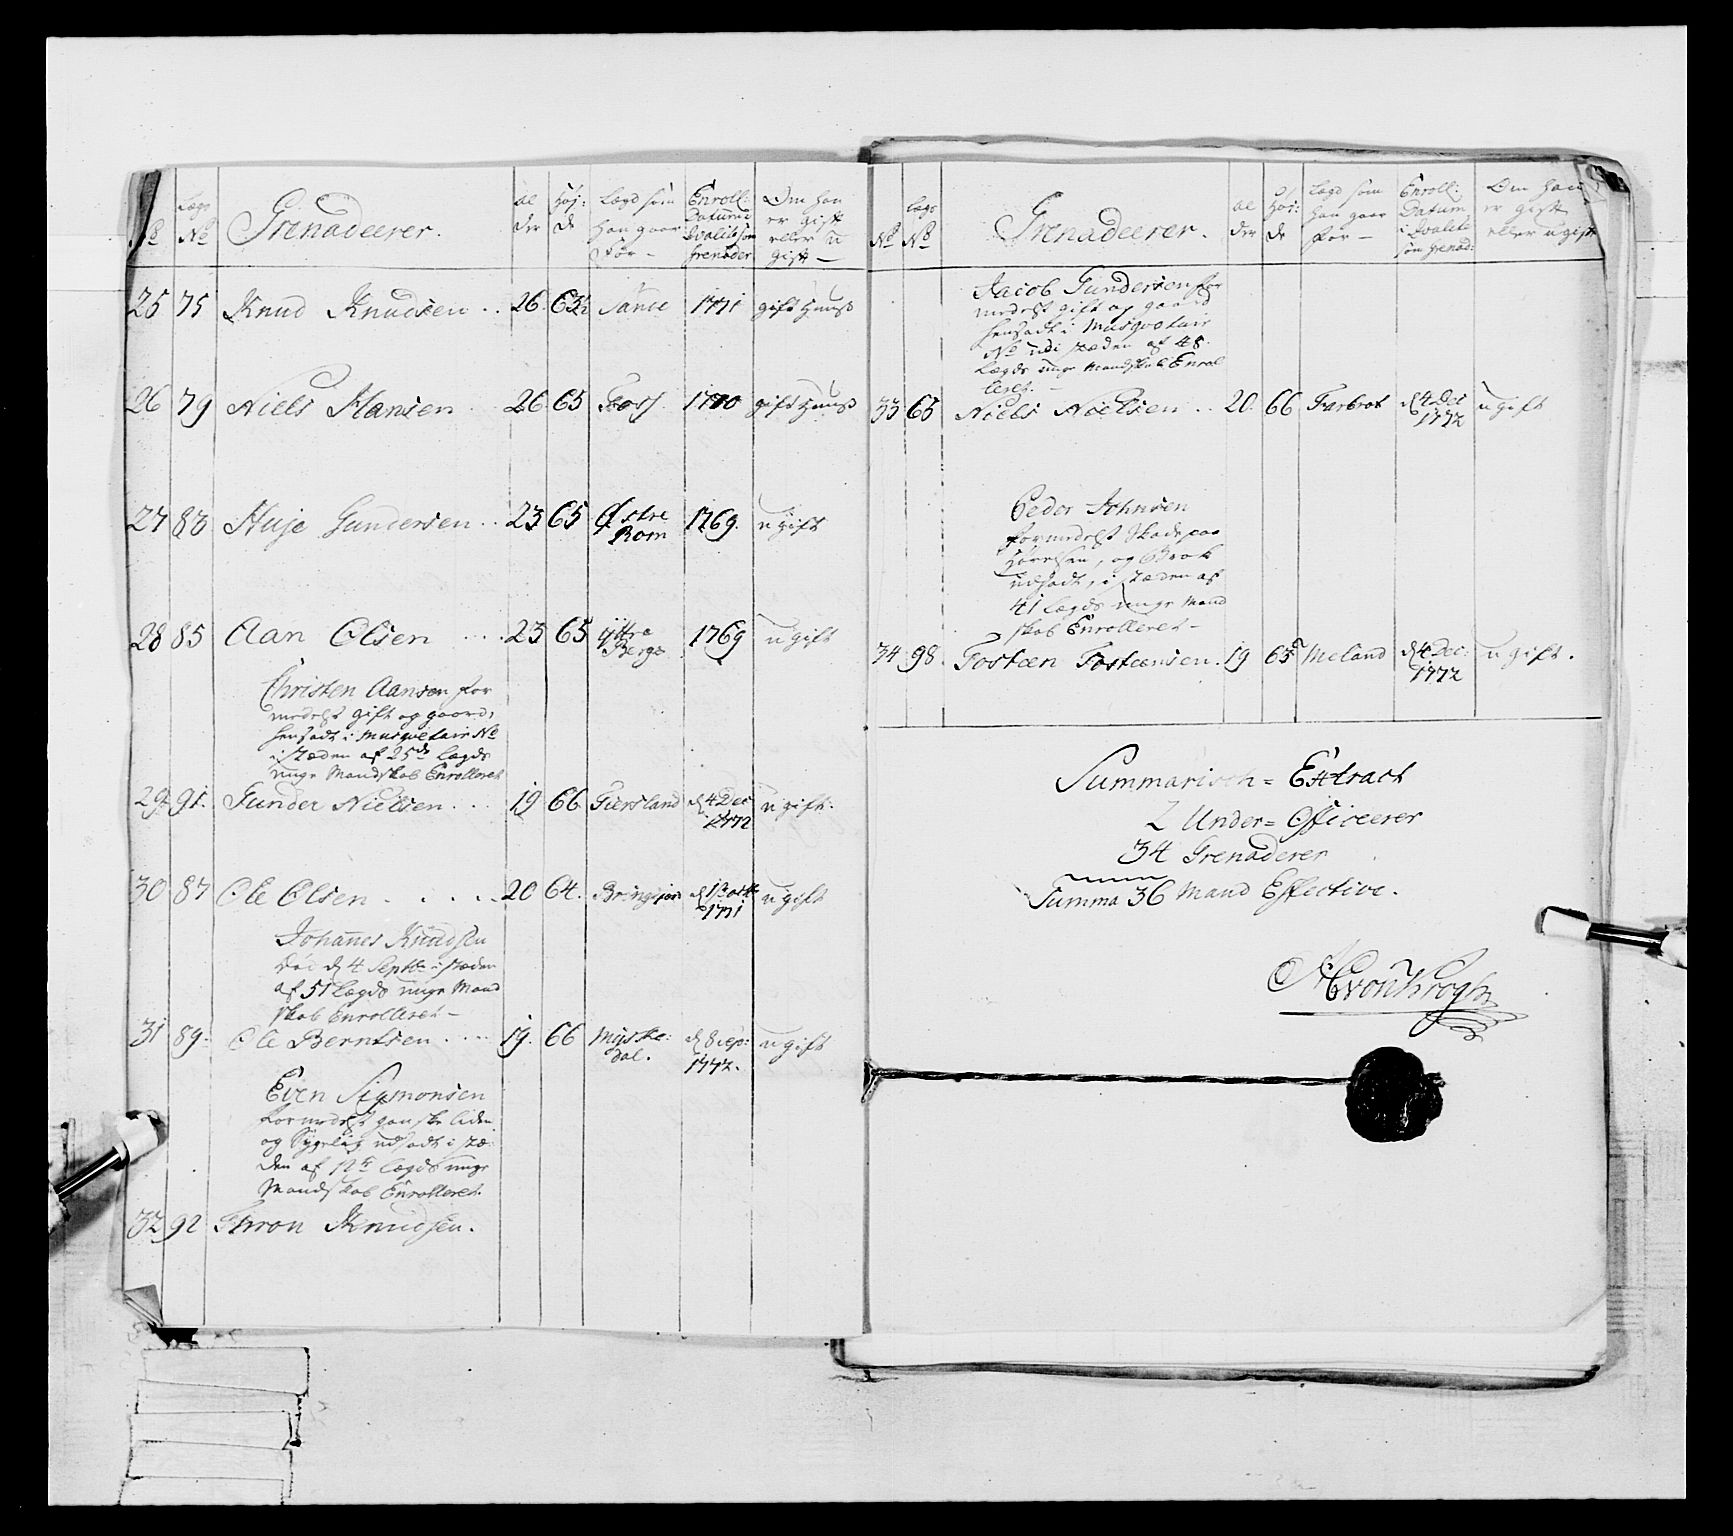 No
Lægs No
Grenadeerer.
al der
Høj: de
Lægd som han gaar for —
Enroll: Datum i Qvalite som Grenader
Om han er gift eller u gift —
25 75 Knud Knudsen . . 26. 63½ 1771 gift Huusm
26 79 Niels Hansen . . 26. 65 Foss 1770 gift Huusm
27 83 Huje Gundersen . . 23 65 Østre Rom 1769. ugift
28 85 Aan Olsen . . . . 23 65 Yttre Berge 1769 ugift
Christen Aansen for
medelst gift og gaard,
hensadt i Musquetair No
i stæden af 25de Lægds
unge Mandskab Enrolleret
29. 91. Gunder Nielsen . . . 19 66 Giersland d 4 Dec 1772 ugift.
30 87 Ole Olsen . . . . . 20 64. d 13 octb 1771 ugift
Johannes Knudsen
død d 4 Septbr i stæden
af 51 Lægds unge Mand
skab Enrolleret —
31 89. Ole Berntsen . . . . 19. 66 Myske: dal. d 8 sep: 1772. ugift
Even Sigmonsen
formedelst ganske liden
og Sygelig udsadt i stæ:
den af 12te Lægds unge
Mandskab Enrolleret.
32 92 Thron Knudsen.
No
Lægs No
Grenadeerer.
al der
Høj: de
Lægd som han gaar for —
Enroll: Datum i Qvalite som Grenad:
Om han er gift eller ugift
Jacob Gundersen for
medelst gift og gaard
hensadt i Musqvetair
No udi stæden af 48.
Lægds unge Mandskab Enrol
leret.
33 65 Niels Nielsen . . 20. 66 Farbrot d 4 Dec 1772 ugift
Peder Johnsen
formedelst Skade paa
Hørelsen, og Brok
udsadt, i stæden af
41 Lægds unge Mand
skab Enrolleret —
34 98. Tosten Tostensen. 19 65 Meland d 4 Dec: 1772 ugift.
Summarisch = Extract
2 Under = Officeerer
34 Grenaderer
Summa 36 Mand Effective.
von Krogh